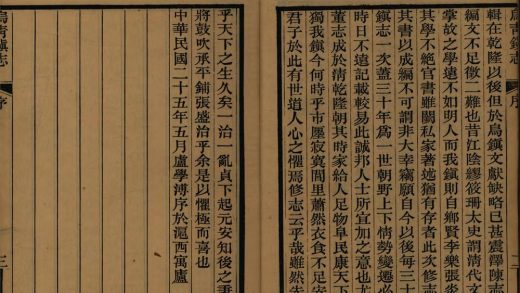 烏青鎮志 序
輯在乾隆以後但於烏鎮文獻缺略已甚震澤陳志
編文不足徵二難也昔江陰繆筱珊太史謂清代文
掌故之學遠不如明人而我鎮則自鄉賢李樂張炎
其學不絕官書雖闕私家著述猶有存者此次修志
其書以成編不可謂非大幸竊願自今以後每三十
鎮志一次蓋三十年爲一世朝野上下情勢變遷必
時日不遠記載較易此誠邦人士所宜加之意也尤
董志成於清乾隆朝其時家給人足物阜民康天下
獨我鎮今何時乎市廛寂寞閭里蕭然衣食不足安
君子於此有世道人心之懼焉修志云乎哉雖然先
乎天下之生久矣一治一亂貞下起元安知後之秉
將鼓吹承平鋪張盛治乎余是以懼極而喜也
中華民國二十五年五月盧學溥序於滬西寓廬
烏青鎮志 序 三